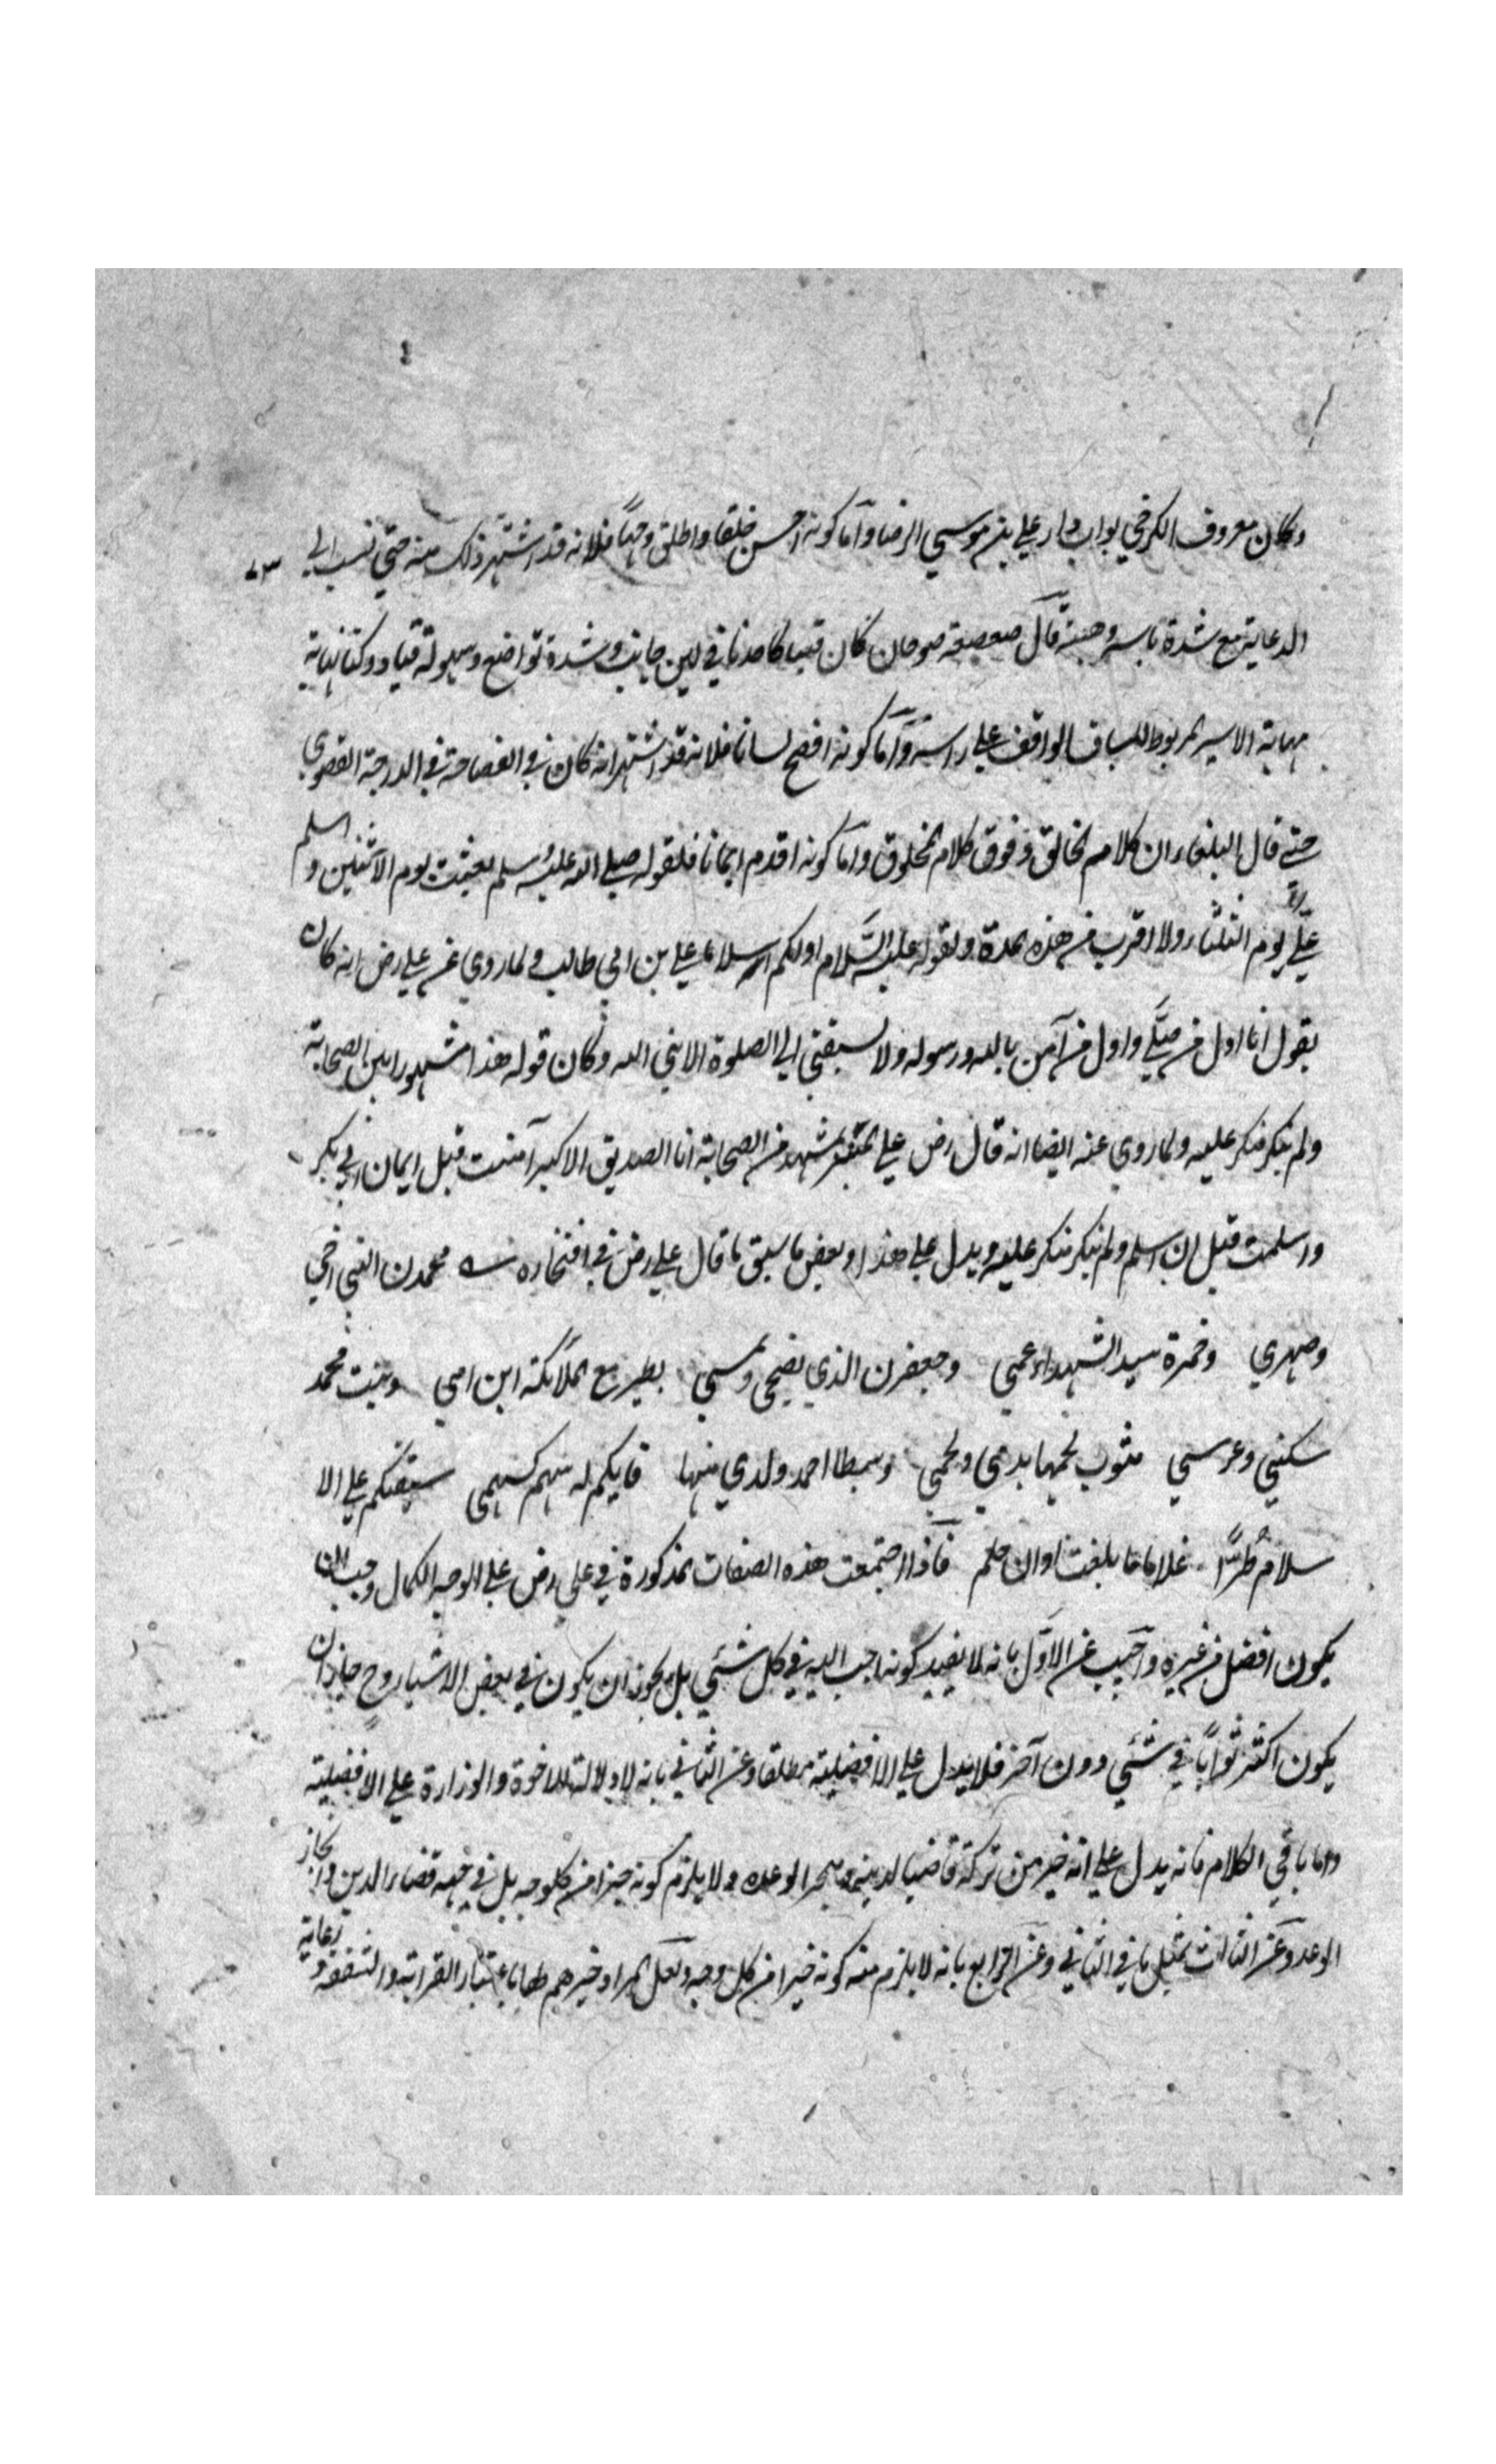 وكان معروف الكرخي بواب دار علي بن موسي الرضا واما كونه احسن خلقا واطلق وجهاً فلانه قد اشتهر ذلك منه حتي نسب الي
الدعابة مع شدة باسه وهيبته قال صعصعة صوحان كان فينا كاحدنا في لين جانب وشدة تواضع وسهولة قياد وكنا نهابه
مهابة الاسير المربوط للسياف الواقف علي راسه واما كونه افصح لسانا فلانه قد اشتهر انه كان في الفصاحة في الدرجة القصوي
حتي قال البلغاء ان كلامه الخالق وفوق كلام المخلوق واما كونه اقدم ايمانا فلقوله صلي الله عليه وسلم بعثت يوم الاثنين و اسلم
عليّ يوم الثلثاء ولا اقرب من هذه المدة ولقوله عليه السّلام اولكم اسلاما علي بن ابي طالب ولما روي عن علي رض انه كان
يقول انا اول من صلّي واول من آمن بالله ورسوله ولا سبقني الي الصلوة الا نبي الله وكان قوله هذا مشهورا بين الصحابة
ولم ينكر منكر عليه ولما روي عنه ايضا انه قال رض علي المنبر بمشهد من الصحابة انا الصديق الاكبر آمنت قبل ايمان ابي بكر
واسلمت قبل ان اسلم ولم ينكر منكر عليه ويدل علي هذا وبعض ما سبق ما قال علي رض في افتخاره محمدن النبي اخي
وصهري وحمزة سيد الشهداء عمي وجعفرن الذي يضحي ويمسي يطير مع الملائكة ابن امي وبنت محمد
سكني وعرسي مثوب لحمها بدمي ولحمي وسبطا احمد ولدي منها فايكم له سهم كسهمي سبقتكم علي الا
سلام طُرًّا غلاما ما بلغت اوان حلم فاذا اجتمعت هذه الصفات المذكورة في علي رض علي الوجه الكمال وجب ان
يكون افضل من غيره واجيب عن الاوّل بانه لا يفيد كونه احب اليه في كل شئي بل يجوز ان يكون في بعض الاشياء وح جاز ان
يكون اكثر ثواباً في شئي دون آخر فلا يدل علي الافضلية مطلقا وعن الثاني بانه لا دلالة للاخوة والوزارة علي الافضلية
واما باقي الكلام فانه يدل علي انه خير من تركه قاضيا لدينه ومنجزا لوعده ولا يلزم كونه خيرا من كل وجه بل في جهة قضاء الدين وانجاز
الوعد وعن الثالث بمثل ما في الثاني وعن الرابع بانه لا يلزم منه كونه خيرا من كل وجه ولعل المراد خيرهم لها باعتبار القرابة والشفقة و رعاية